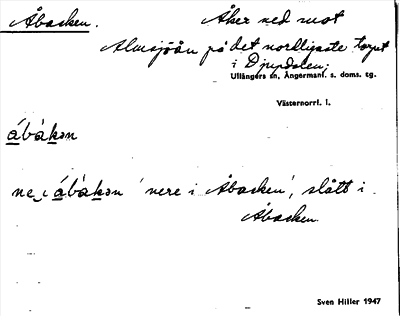 Åbacken. Åker ned mot
Almsjöån på det nordligaste torpet
i Djupdalen;
Ullångers sn, Ångermanl. s. doms. tg.
Västernorrl. l.
ábàkən
ne i ábàkən 'nere i Åbacken', slått i
Åbacken
Sven Hiller 1947